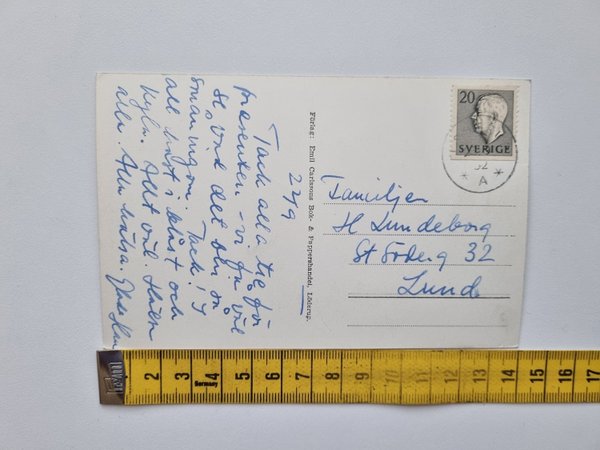 22/9
Tack alla tre för
presenten - vi får väl
se, vad det blir, så
småningom. Tack! I
all hast i blåst och
kyla. Allt väl.
alla.
Förlag: Emil Carlssons Bok- & Pappershandel, Löderup.
20
SVERIGE
52
* A *
Familjen
H Lundeborg
St Söderg 32
Lund
2 3 4 5 6 7 8 9 10 11 12 13 14 15 16 17
Germany